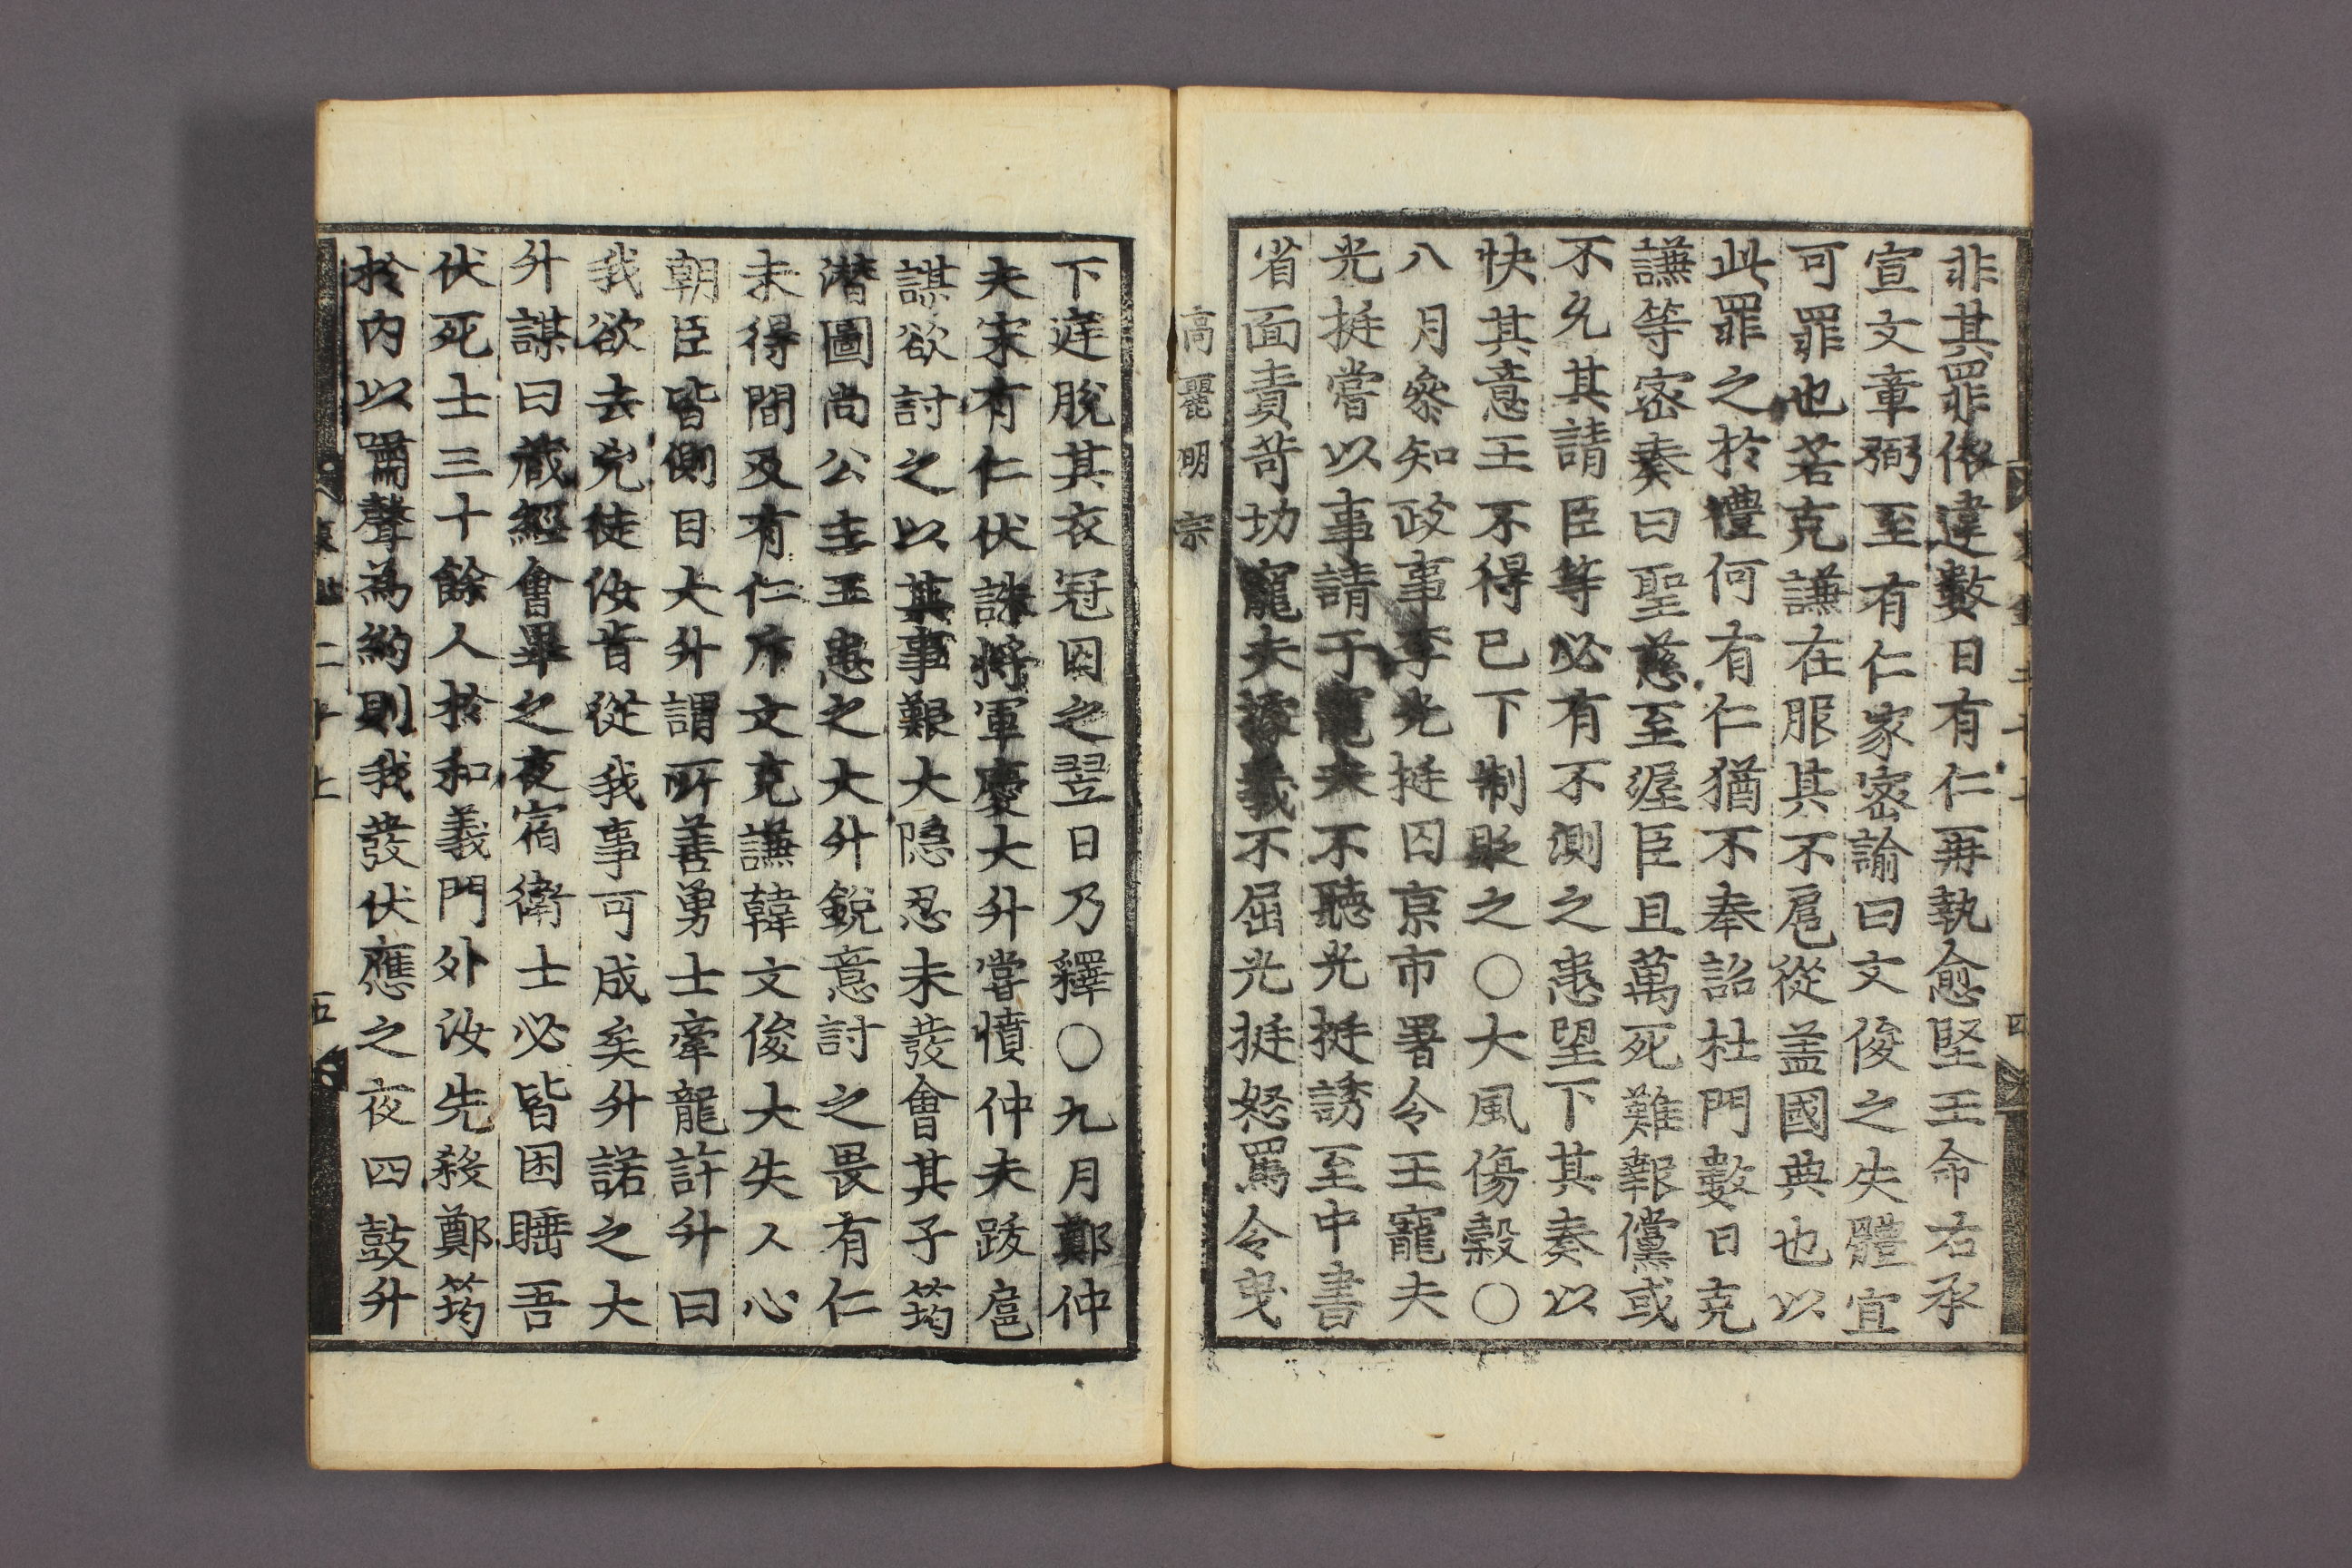 非其罪依違數日有仁再執愈堅王命右承
宣文章弼至有仁家密諭曰文俊之失體宜
可罪也若克謙在服其不扈從盖國典也以
此罪之於禮何有仁猶不奉詔杜門數日克
謙等密奏曰聖慈至渥臣且萬死難報儻或
不允其請臣等必有不測之患望下其奏以
快其意王不得已下制貶之〇大風傷穀〇
八月叅知政事李光挺囚京市署令王寵夫
光挺嘗以事請于寵夫不聽光挺誘至中書
省面責苛功寵夫據義不屈光挺怒罵令曳
高麗明宗
下庭脫其衣冠囚之翌日乃釋〇九月鄭仲
夫宋有仁伏誅將軍慶大升嘗憤仲夫跋扈
謀欲討之以其事艱大隱忍未發會其子筠
潛圖尚公主王患之大升銳意討之畏有仁
未得間及有仁斥文克謙韓文俊大失人心
朝臣皆側目大升謂所善勇士牽龍許升曰
我欲去兇徒汝肯從我事可成矣升諾之大
升謀曰藏經會畢之夜宿衛士必皆困睡吾
伏死士三十餘人於和義門外汝先殺鄭筠
於內以嘯聲為約則我發伏應之夜四鼓升